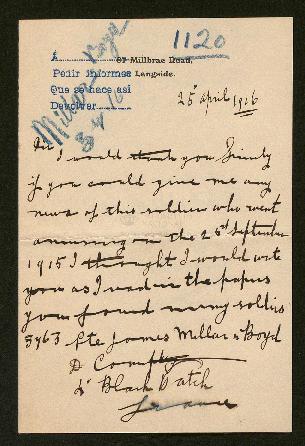 1120
À
Pedir informes
Que se hace asi
Devolver
Millar Boyd
67 Millbrae Road,
Langside.
25 april 1916
Sir
I would thank you kindly
if you could give me any
news of this soldier who went
amissing on the 25th September
1915 I thought I would write
you as I read in the papers
you found many soldiers
5763 Pte James Millar Boyd
D Company
Black Watch
France